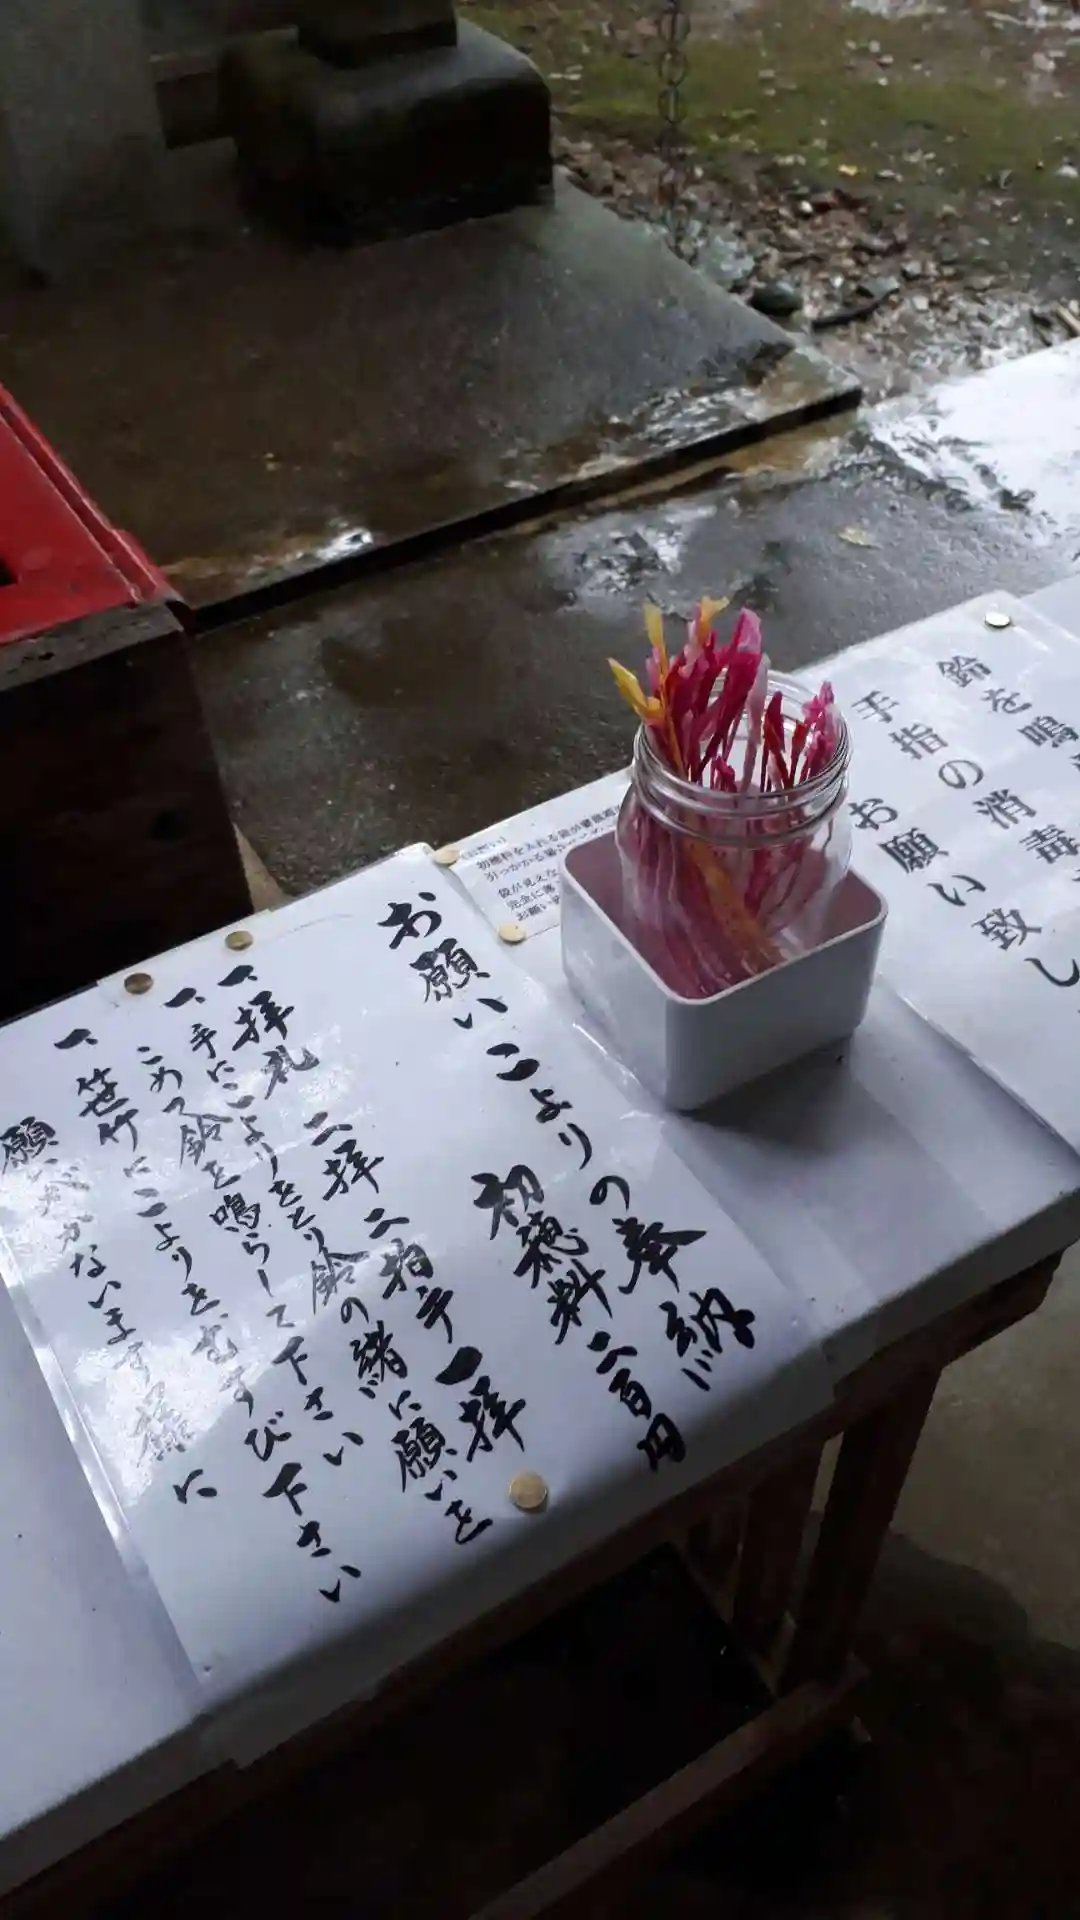 鈴を鳴
手指の消毒
お願い致し
初穂料を入れる袋が
引っかかる場合
袋が見えな
完全に
お願い
お願い こよりの奉納
初穂料 二百円
一、拝礼 二拝 二拍手 一拝
一、手にこよりをとり鈴の緒に願いを
こめて鈴を鳴らして下さい
一、笹竹にこよりをむすび下さい
願いがかないます様に